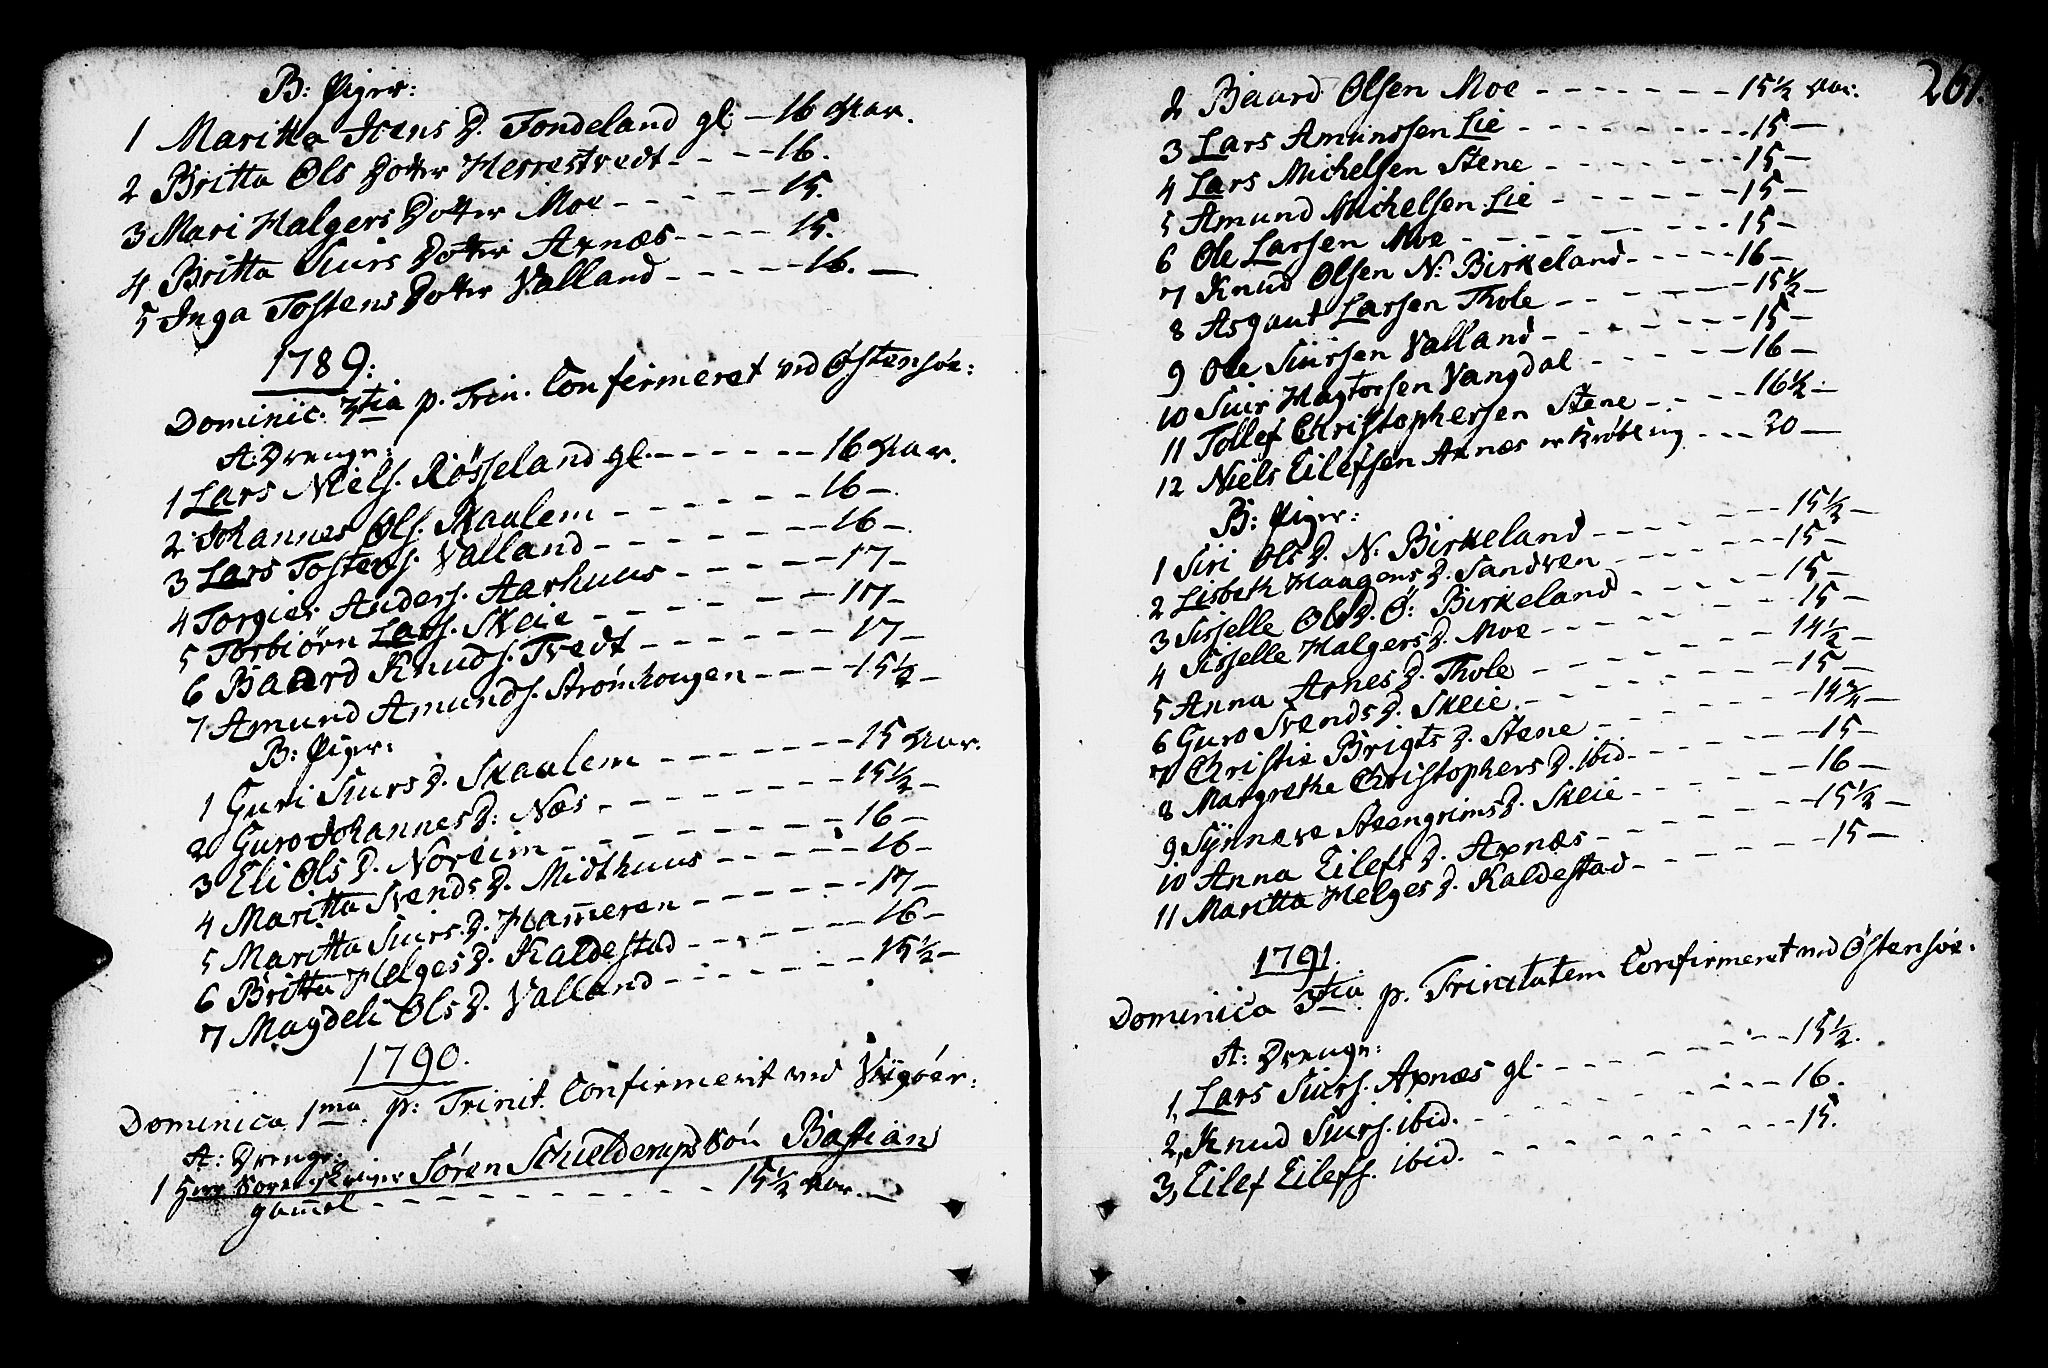 B: Piger:
1 Maritta Ivers D. Tondeland gl. - 16 Aar.
2 Britta Ols Dotter Herrestvedt - - - - 16.
3 Mari Halgers Dotter Moe - - - - - 15.
4 Britta Siurs Dotter Axnæs - - - - 15.
5 Inga Tostens Dotter Valland - - - - - 16. -
1789:
Dominic: 3tia p. Trin. Confirmeret ved Østensøe:
A: Drenge:
1 Lars Niels. Røsseland gl. - - - - - 16 Aar.
2 Johannes Ols. Skaalem - - - - - - 16 -
3 Lars Tostens. Valland - - - - - - 16 -
4 Torgier Anders. Aarhuus - - - - - 17 -
5 Torbiörn Lars. Skeie - - - - - - 17 -
6 Baard Knuds. Tvedt - - - - - - 17 -
7 Amund Amunds. Strømhougen - - - - 15½ -
B: Piger:
1 Guri Siurs D. Skaalem - - - - - 15 Aar.
2 Guro Johannes D: Næs - - - - - - 15½ -
3 Eli Ols D. Noreim - - - - - - - 16 -
4 Maritta Svends D. Midthuus - - - - - 16 -
5 Maritta Siurs. D. Ham̄eren - - - - - 17 -
6 Britta Helges D. Kaldestad - - - - - 16 -
7 Magdeli Ols D. Valland - - - - - - 15½ -
1790.
Dominica 1ma. p: Trinit. Confirmerit ved Vigöer:
A: Drenge:
1 Søren Schielderups Søn Bastian
gam̄el - - - - - - - - - 15½ Aar. -
261.
2 Baard Olsen Moe - - - - - - - 15½ Aar.
3 Lars Amunssen Lie - - - - - - - 15 -
4 Lars Michelsen Stene - - - - - - 15 -
5 Amund Michelsen Lie - - - - - - 15 -
6 Ole Larsen Moe - - - - - - - - 15 -
7 Knud Olsen N: Birkeland - - - - - 16 -
8 Asgaut Larsen Thole - - - - - - 15½ -
9 Ole Siursen Valland - - - - - - 15 -
10 Siur Hagtorsen Vangdal - - - - - 16 -
11 Tollef Christophersen Stene - - - - 16½ -
12 Niels Eilefsen Axnæs er Krøbling - - - 20 -
B: Piger:
1 Siri Ols D. N. Birkeland - - - - - - 15½ -
2 Lisbeth Haagens D. Sandven - - - - - 15 -
3 Sisselle Ols D. Ø: Birkeland - - - - - 15 -
4 Sisselle Halgers D. Moe - - - - - - 15 -
5 Anna Arnes D. Thole - - - - - - - 14½ -
6 Guro Svends D. Skeie - - - - - - - 15 -
7 Christie Brigts D. Stene - - - - - - 14¾ -
8 Margrethe Christophers D. ibid - - - - 15 -
9 Synneve Steengrims D. Skeie - - - - - 16 -
10 Anna Eilefs D. Axnæs - - - - - - - 15½ -
11 Maritta Helges D. Kaldestad - - - - - 15 -
1791.
Dominica 3tia p. Trinitatem Confirmeret ved Østensøe.
A: Drenge:
1, Lars Siurs. Axnæs gl. - - - - - - 15½.
2, Knud Siurs. ibid. - - - - - - - 16.
3, Eilef Eilefs. ibid. - - - - - - - 15.